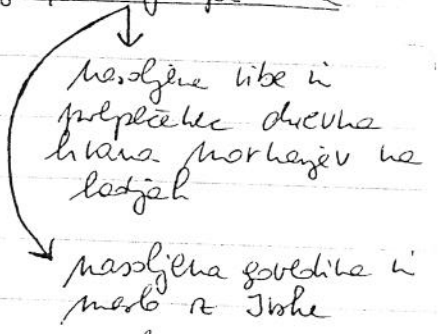 nasoljene ribe in
prepečenec dnevna
hrana mornarjev na
ladjah
nasoljena govedina in
meso iz Irske